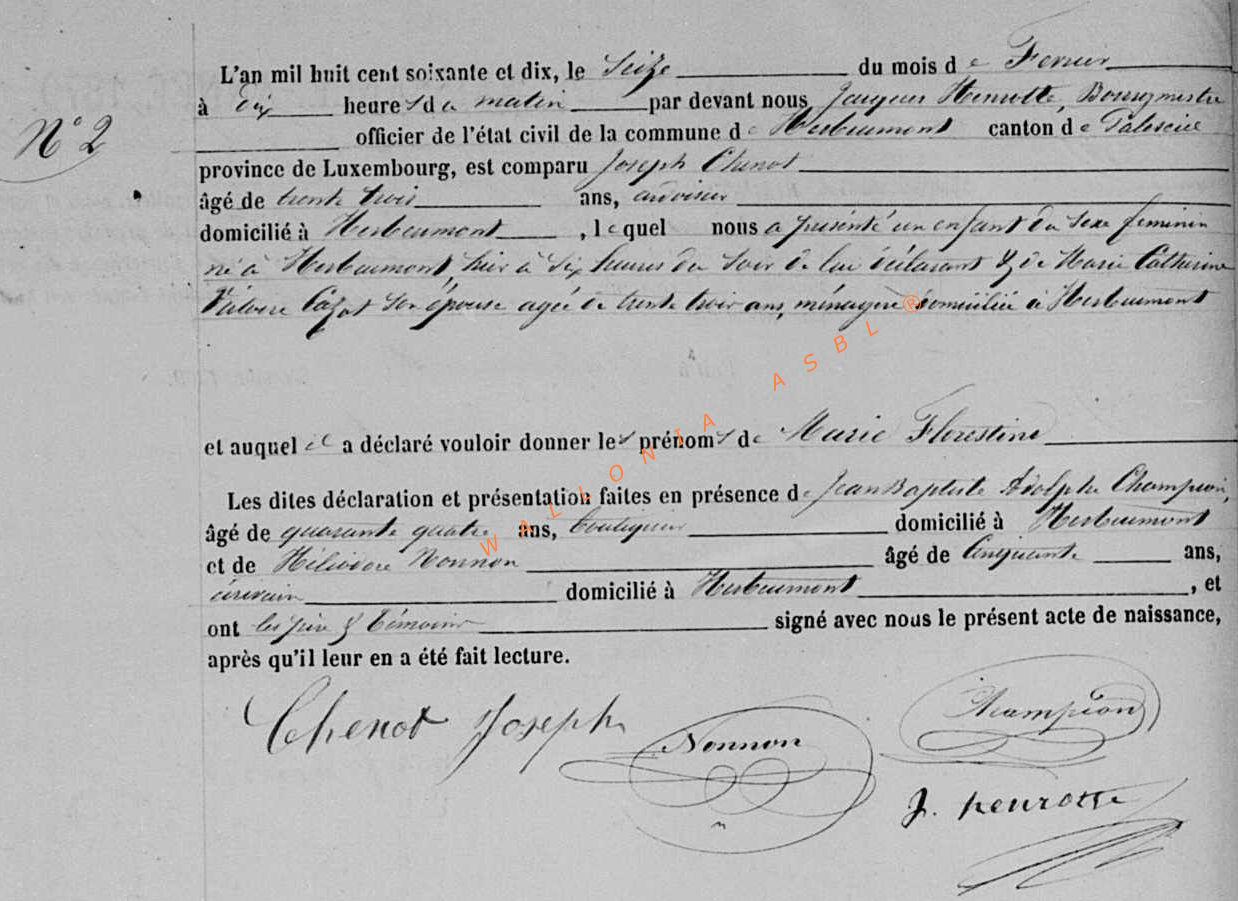 L'an mil huit cent soixante et dix, le Seize du mois de Fevrier
à dix heures du matin par devant nous Jacques Henrotte, Bourgmestre
N° 2
officier de l'état civil de la commune de Herbeumont canton de Paliseul
province de Luxembourg, est comparu Joseph Chenot
âgé de trente trois ans, ardoisier
domicilié à Herbeumont, lequel nous a présenté un enfant du sexe feminin
né à Herbeumont, hier à six heures du soir de lui déclarant & de Marie Catherine
Lazot son épouse agée de trente trois ans, ménagere domiciliée à Herbeumont
et auquel il a déclaré vouloir donner les prénoms de Marie Florestine
Les dites déclaration et présentation faites en présence de Jean Baptiste Adolphe Champion,
âgé de quarante quatre ans, boutiquier domicilié à Herbeumont
et de Héliodore Nonnon âgé de Cinquante ans,
écrivain domicilié à Herbeumont, et
ont les père & témoins signé avec nous le présent acte de naissance,
après qu'il leur en a été fait lecture.
Chenot Joseph
Nonnon
Champion
J. henrotte
WALLONIA ASBL ®